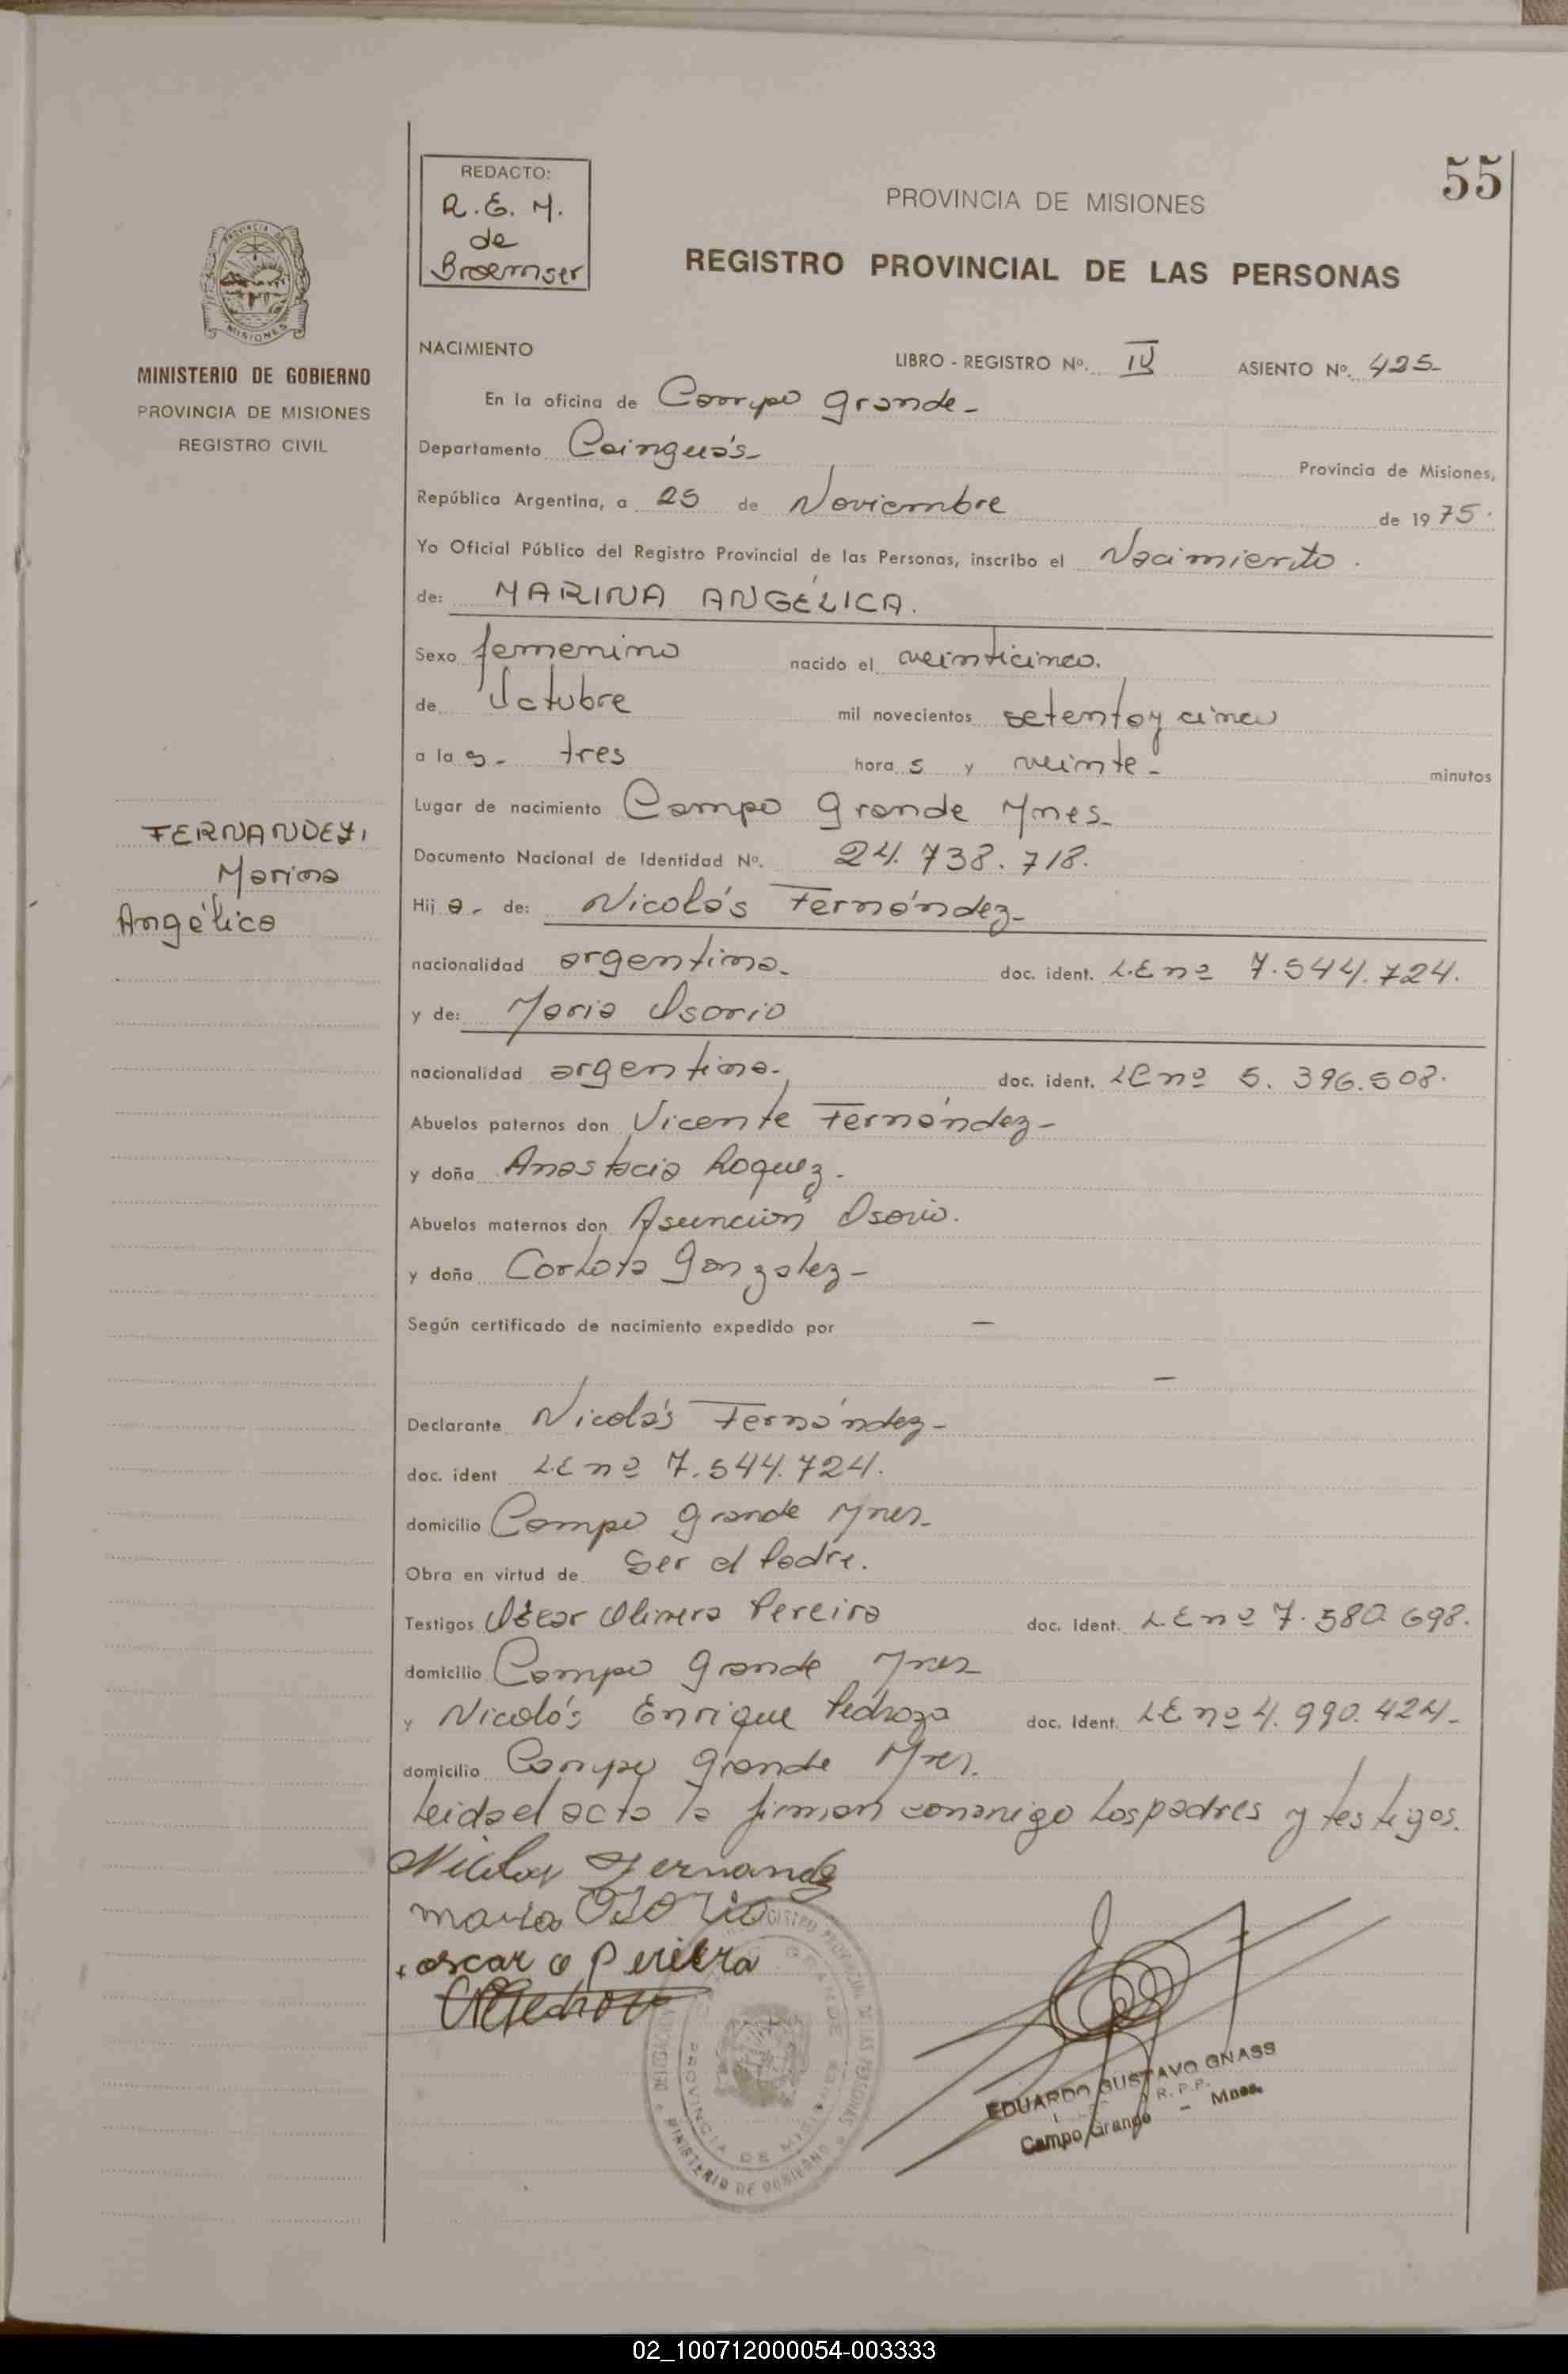 55
REDACTO:
R.E.M.
de
Broemser
PROVINCIA DE MISIONES
REGISTRO PROVINCIAL DE LAS PERSONAS
PROVINCIA DE
MISIONES
MINISTERIO DE GOBIERNO
PROVINCIA DE MISIONES
REGISTRO CIVIL
NACIMIENTO
LIBRO - REGISTRO Nº. IV ASIENTO Nº. 425-
En la oficina de Campo Grande-
Departamento Cainguás- Provincia de Misiones,
República Argentina, a 25 de Noviembre de 1975.
Yo Oficial Público del Registro Provincial de las Personas, inscribo el Nacimiento.
de: MARINA ANGÉLICA.
Sexo femenino nacido el veinticinco.
de Octubre mil novecientos setenta y cinco
a las- tres horas y veinte- minutos
Lugar de nacimiento Campo Grande Mnes-
FERNANDEZ,
Marina
Angélica
Documento Nacional de Identidad Nº. 24.738.718.
Hija- de: Nicolás Fernández-
nacionalidad argentina- doc. ident. L.E nº 7.544.724.
y de: María Osorio
nacionalidad argentina- doc. ident. LC nº 5.396.508.
Abuelos paternos don Vicente Fernández-
y doña Anastacia Roquez.
Abuelos maternos don Asunción Osorio.
y doña Carlota Gonzalez-
Según certificado de nacimiento expedido por -
-
Declarante Nicolás Fernández-
doc. ident L.E nº 7.544.724.
domicilio Campo Grande Mnes-
Obra en virtud de Ser el Padre.
Testigos Oscar Olivera Pereira doc. Ident. L.E nº 7.580.698.
domicilio Campo Grande Mnes
y Nicolás Enrique Pedroza doc. Ident. LE nº 4.990.424-
domicilio Campo Grande Mnes.
Leida el acta la firman conmigo los padres y testigos.
Nicolas Fernandez
maria OSORio
oscar o pereira
EDUARDO GUSTAVO GNASS
R.P.P.
Campo Grande - Mnes.
02_100712000054-003333